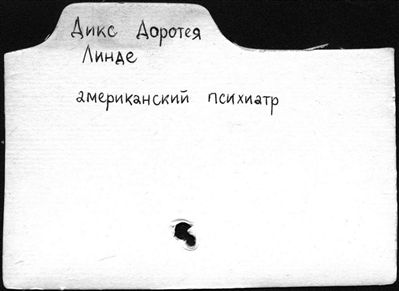 Дикс Доротея
Линде
американский психиатр